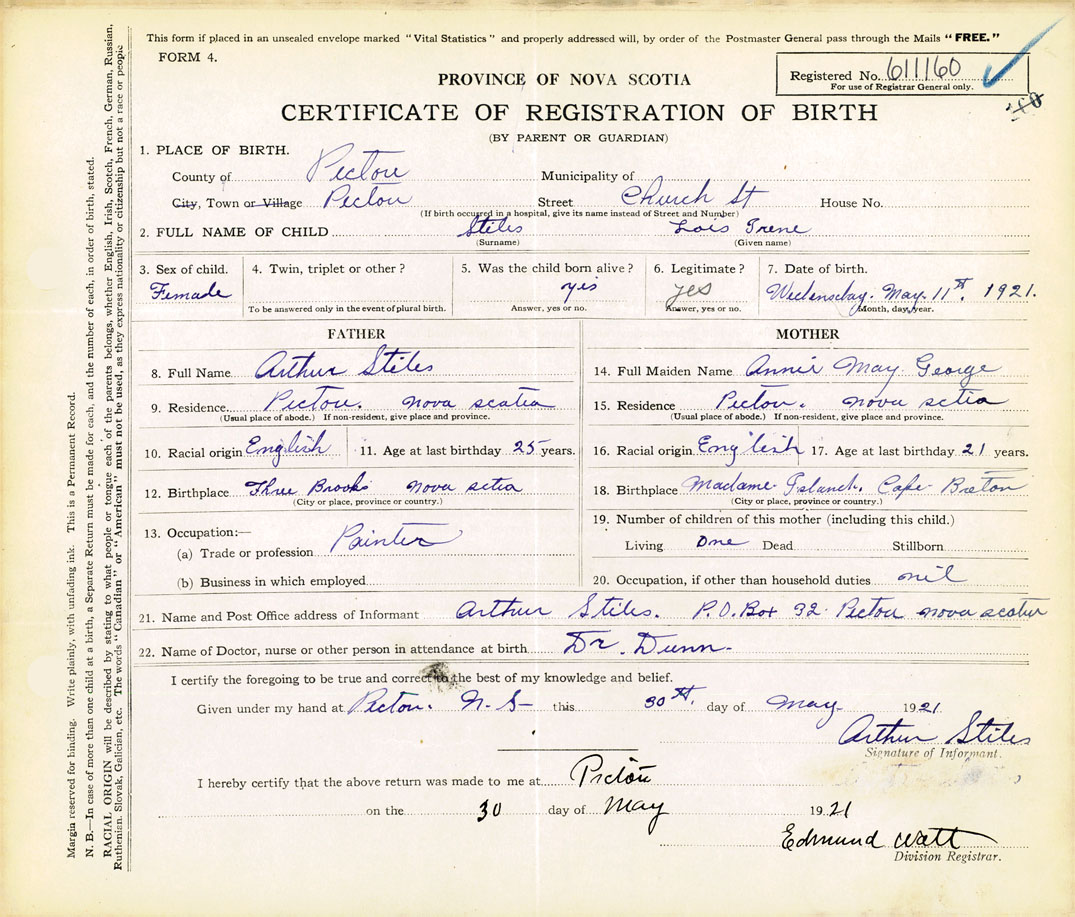 This form if placed in an unsealed envelope marked "Vital Statistics" and properly addressed will, by order of the Postmaster General pass through the Mails "FREE."
FORM 4.
PROVINCE OF NOVA SCOTIA
Registered No. 611160
For use of Registrar General only.
CERTIFICATE OF REGISTRATION OF BIRTH
(BY PARENT OR GUARDIAN)
1. PLACE OF BIRTH.
County of Pictou Municipality of
City, Town or Village Pictou Street Church St House No.
(If birth occurred in a hospital, give its name instead of Street and Number)
2. FULL NAME OF CHILD Stiles Lois Irene
(Surname) (Given name)
3. Sex of child. 4. Twin, triplet or other? 5. Was the child born alive? 6. Legitimate? 7. Date of birth.
Female yis yes Wedensday. May 11st. 1921.
To be answered only in the event of plural birth. Answer, yes or no. Answer, yes or no. Month, day, year.
FATHER MOTHER
8. Full Name Arthur Stiles 14. Full Maiden Name Annie May George
9. Residence Pictou. nova scotia 15. Residence Pictou. nova sctia
(Usual place of abode.) If non-resident, give place and province. (Usual place of abode.) If non-resident, give place and province.
10. Racial origin English 11. Age at last birthday 25 years. 16. Racial origin English 17. Age at last birthday 21 years.
12. Birthplace Three Brooks nova sctia 18. Birthplace Madame Island. Cape Breton
(City or place, province or country.) (City or place, province or country.)
13. Occupation:— 19. Number of children of this mother (including this child.)
(a) Trade or profession Painter Living One Dead Stillborn
(b) Business in which employed 20. Occupation, if other than household duties nil
21. Name and Post Office address of Informant Arthur Stiles. P.O. Box 92 Pictou nova scotia
22. Name of Doctor, nurse or other person in attendance at birth Dr. Dunn.
I certify the foregoing to be true and correct to the best of my knowledge and belief.
Given under my hand at Picton. N. S this 30st. day of May 1921.
Arthur Stiles
Signature of Informant.
I hereby certify that the above return was made to me at Pictou
on the 30 day of May 1921
Edmund Watt
Division Registrar.
Margin reserved for binding. Write plainly, with unfading ink. This is a Permanent Record.
N. B.—In case of more than one child at a birth, a Separate Return must be made for each, and the number of each, in order of birth, stated.
RACIAL ORIGIN will be described by stating to what people or tongue each of the parents belongs, whether English, Irish, Scotch, French, German, Russian,
Ruthenian. Slovak, Galician, etc. The words "Canadian" or "American" must not be used, as they express nationality or citizenship but not a race or people